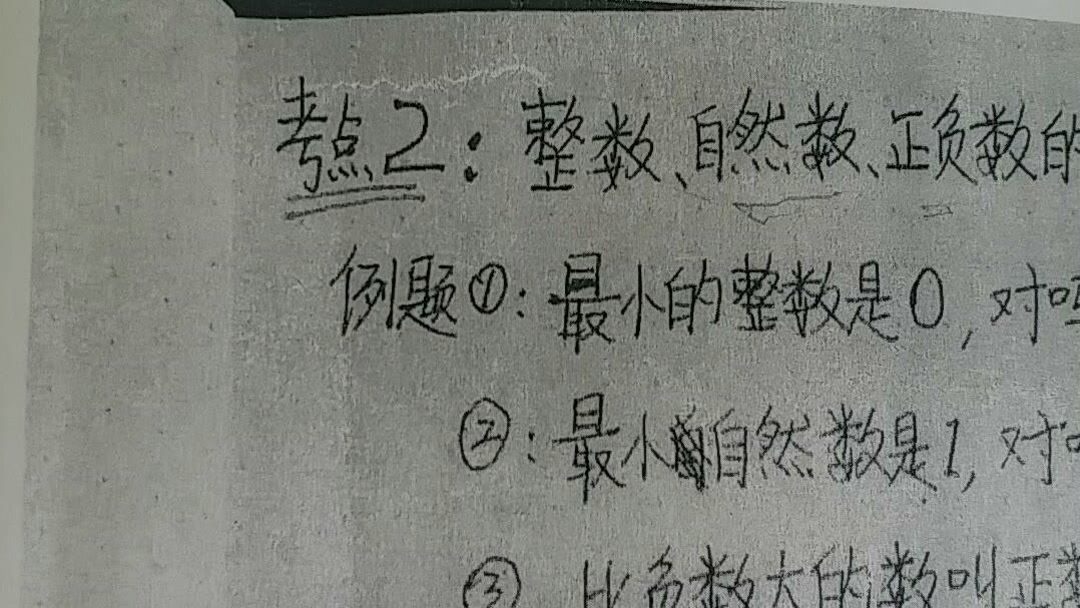 考点2：整数、自然数、正负数的
例题①：最小的整数是0，对吗
②：最小的自然数是1，对
③ 比负数大的数叫正数